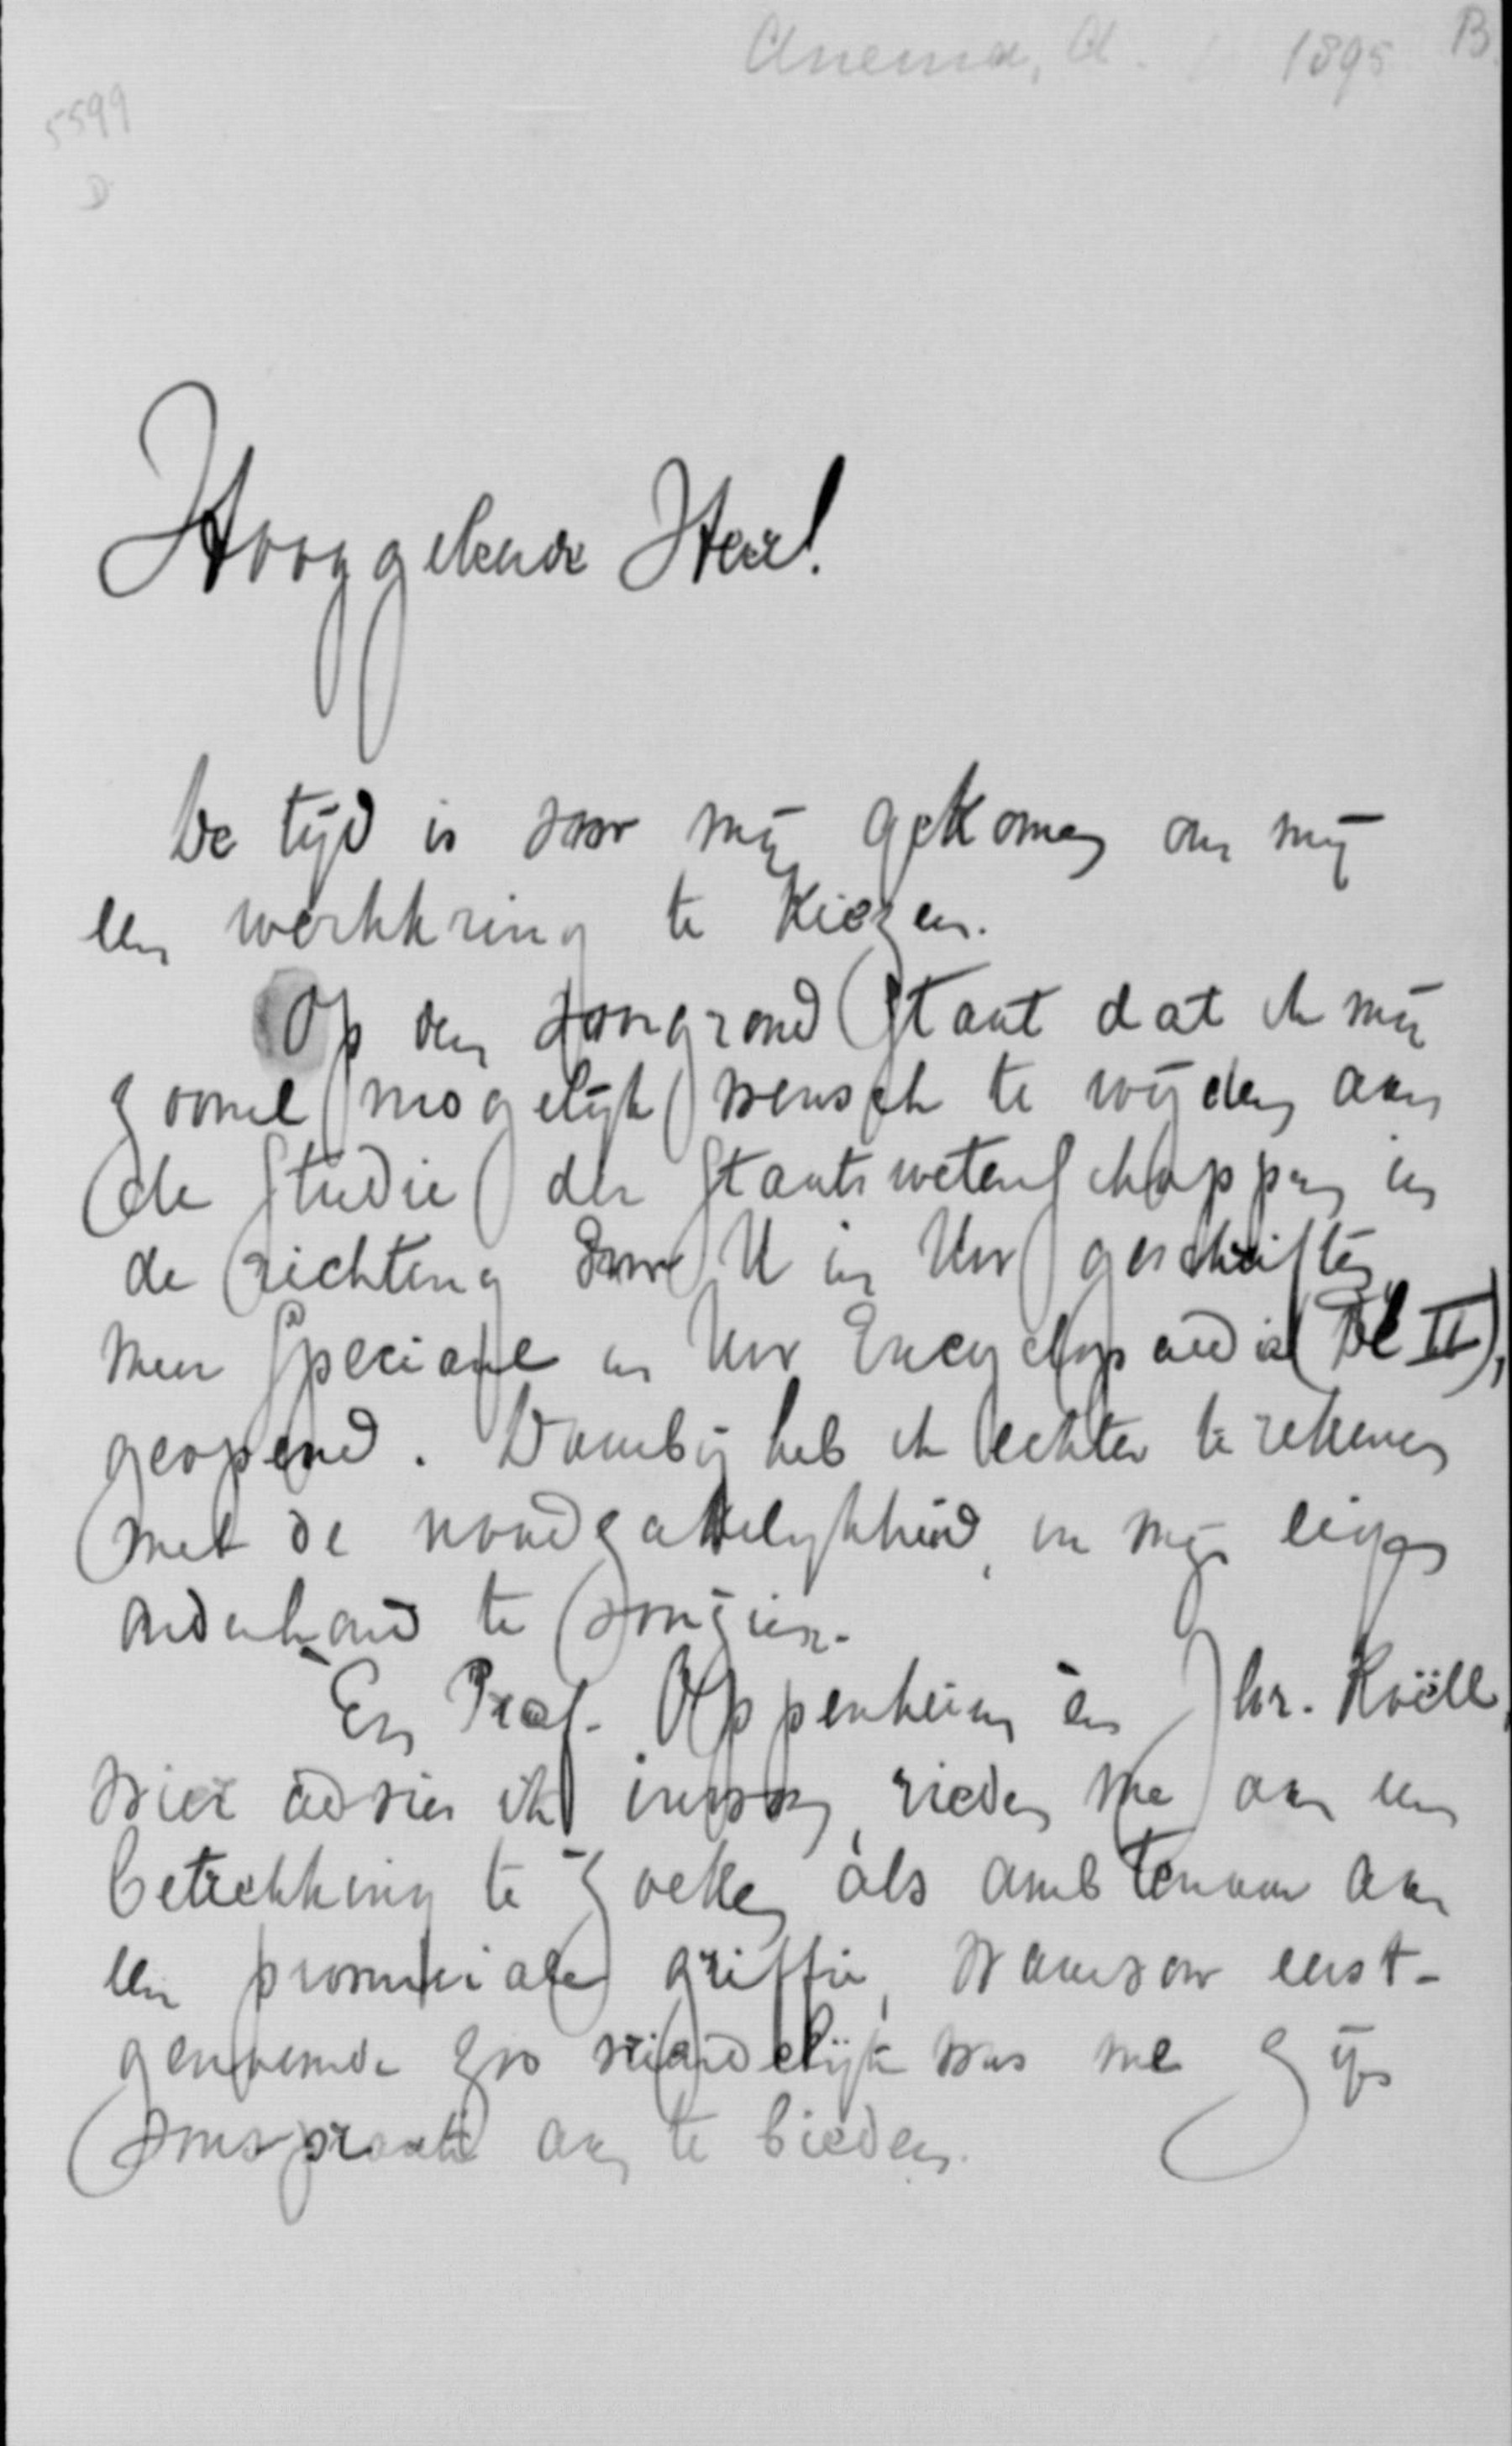 Anema, A. 1895 B.
5599
D
Hooggeleerde Heer!
De tijd is voor mij gekomen om mij
een werkkring te kiezen.
Op den voorgrond staat dat ik mij
zooveel mogelijk wensch te wijden aan
de studie der staatswetenschappen in
de richting door U in Uw geschriften,
meer speciaal in Uw Encyclopaedie (Dl II),
geopend. Daarbij heb ik echter te rekenen
met de noodzakelijkheid, in mijn eigen
onderhoud te voorzien.
En Prof. Oppenheim èn Jhr. Roëll,
wier advies ik inwon, rieden me aan een
betrekking te zoeken als ambtenaar aan
een provinciale griffie, waarvoor eerst-
genoemde zoo vriendelijk was me zijn
voorspraak aan te bieden.